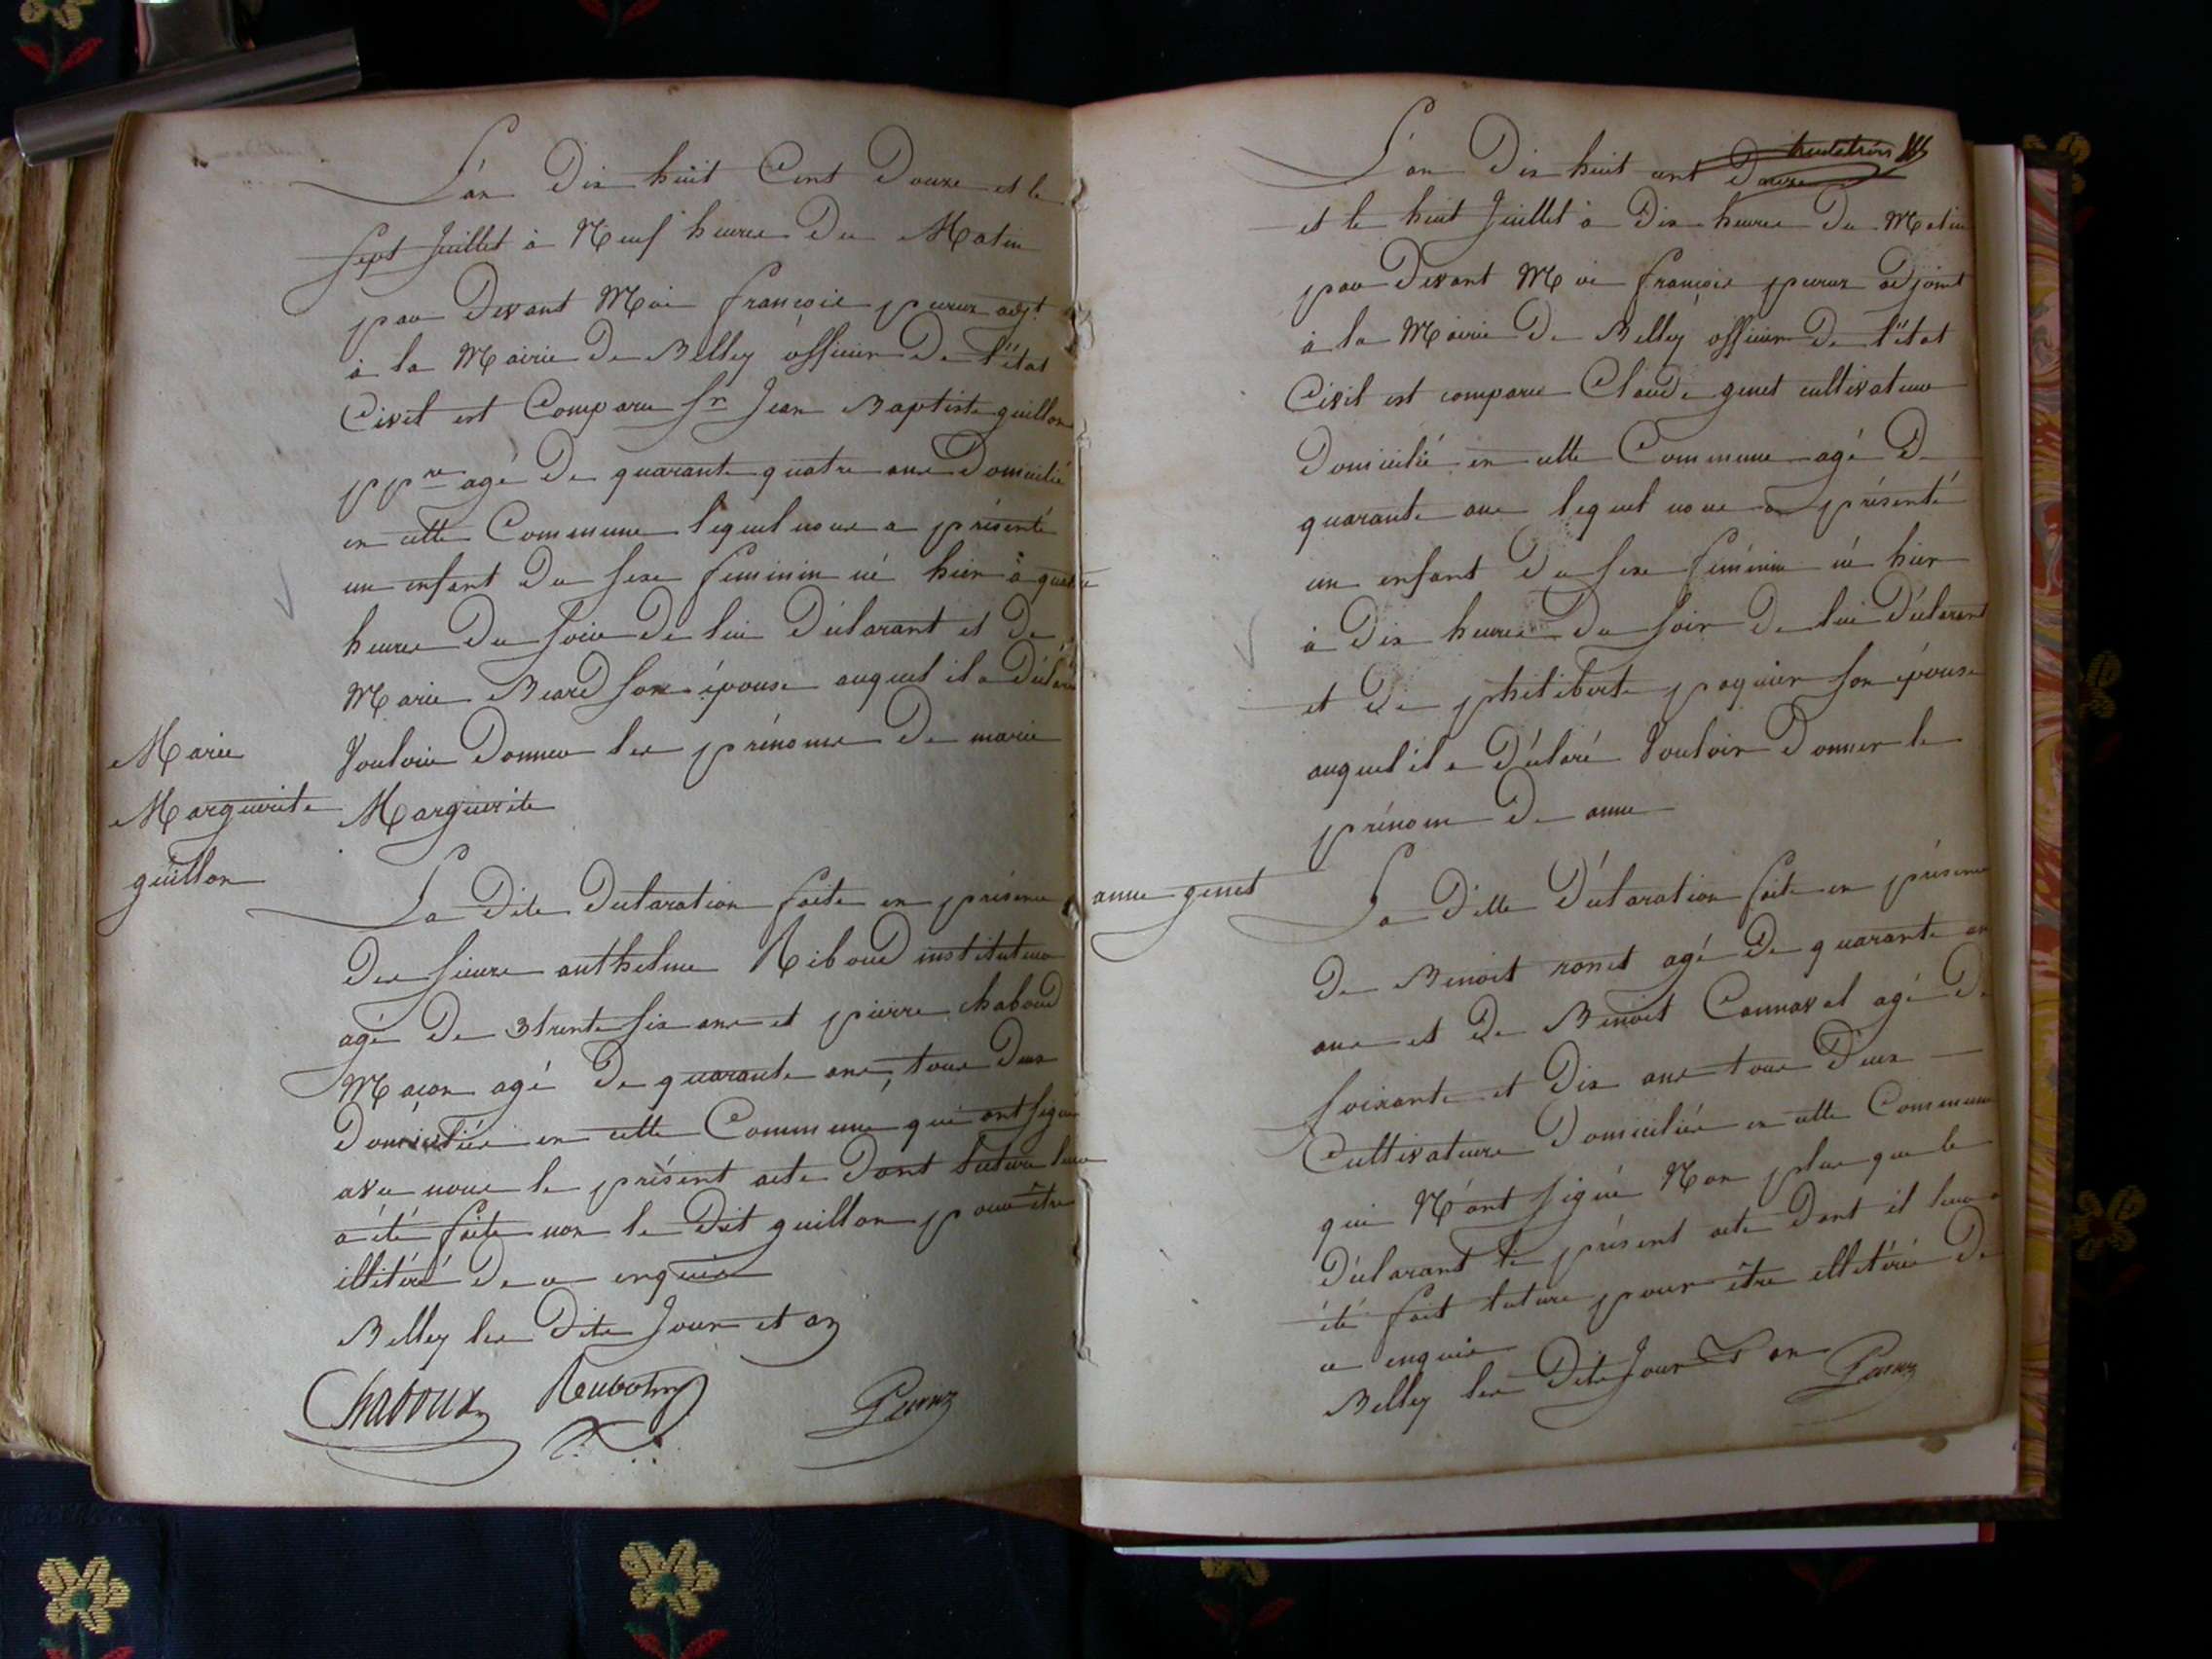 L'an Dix huit Cent Douze et le
Sept Juillet à Neuf heures Du Matin
par Devant Moi françois peruz adjt
à la Mairie De Belley officier De l'état
Civil est Comparu Sr Jean Baptiste guillon
ppre agé De quarante quatre ans Domicilié
en cette Commune lequel nous a présenté
un enfant Du sexe feminin né hier à quatre
heures Du soir De lui Déclarant et De
Marie Beard son épouse auquel il a Déclaré
Vouloir Donner les prénoms De marie
Marguerite
Marie
Marguerite
guillon
La Dite Declaration faite en présence
Des sieurs anthelme Riboud instituteur
agé De trente six ans et pierre chaboud
Maçon agé De quarante ans, tous Deux
Domiciliés en cette Commune qui ont signé
avec nous le présent acte Dont lecture leur
a été faite non le Dit guillon pour être
illitéré De ce enquis
Belley les Dits Jour et an
Chaboux
L'an Dix huit cent
et le huit Juillet à Dix heures Du Matin
par Devant Moi françois peruz adjoint
à la Mairie De Belley officier De l'état
Civil est comparu Claude genet cultivateur
Domicilié en cette Commune agé De
quarante ans lequel nous a présenté
un enfant Du sexe féminin né hier
à Dix heures Du soir De lui Déclarant
et De philiberte paquier son épouse
auquel il a Déclaré Vouloir Donner le
prénom De anne
anne genet
La Ditte Déclaration faite en présence
De Benoit ronet agé De quarante un
ans et De Benoit Cannaval agé De
soixante et Dix ans tous Deux
Cultivateurs Domiciliés en cette Commune
qui N'ont signé Non plus que le
Déclarant le présent acte Dont il leur a
été fait lecture pour être illetérés De
ce enquis
Belley les Dits Jour & an Peruz